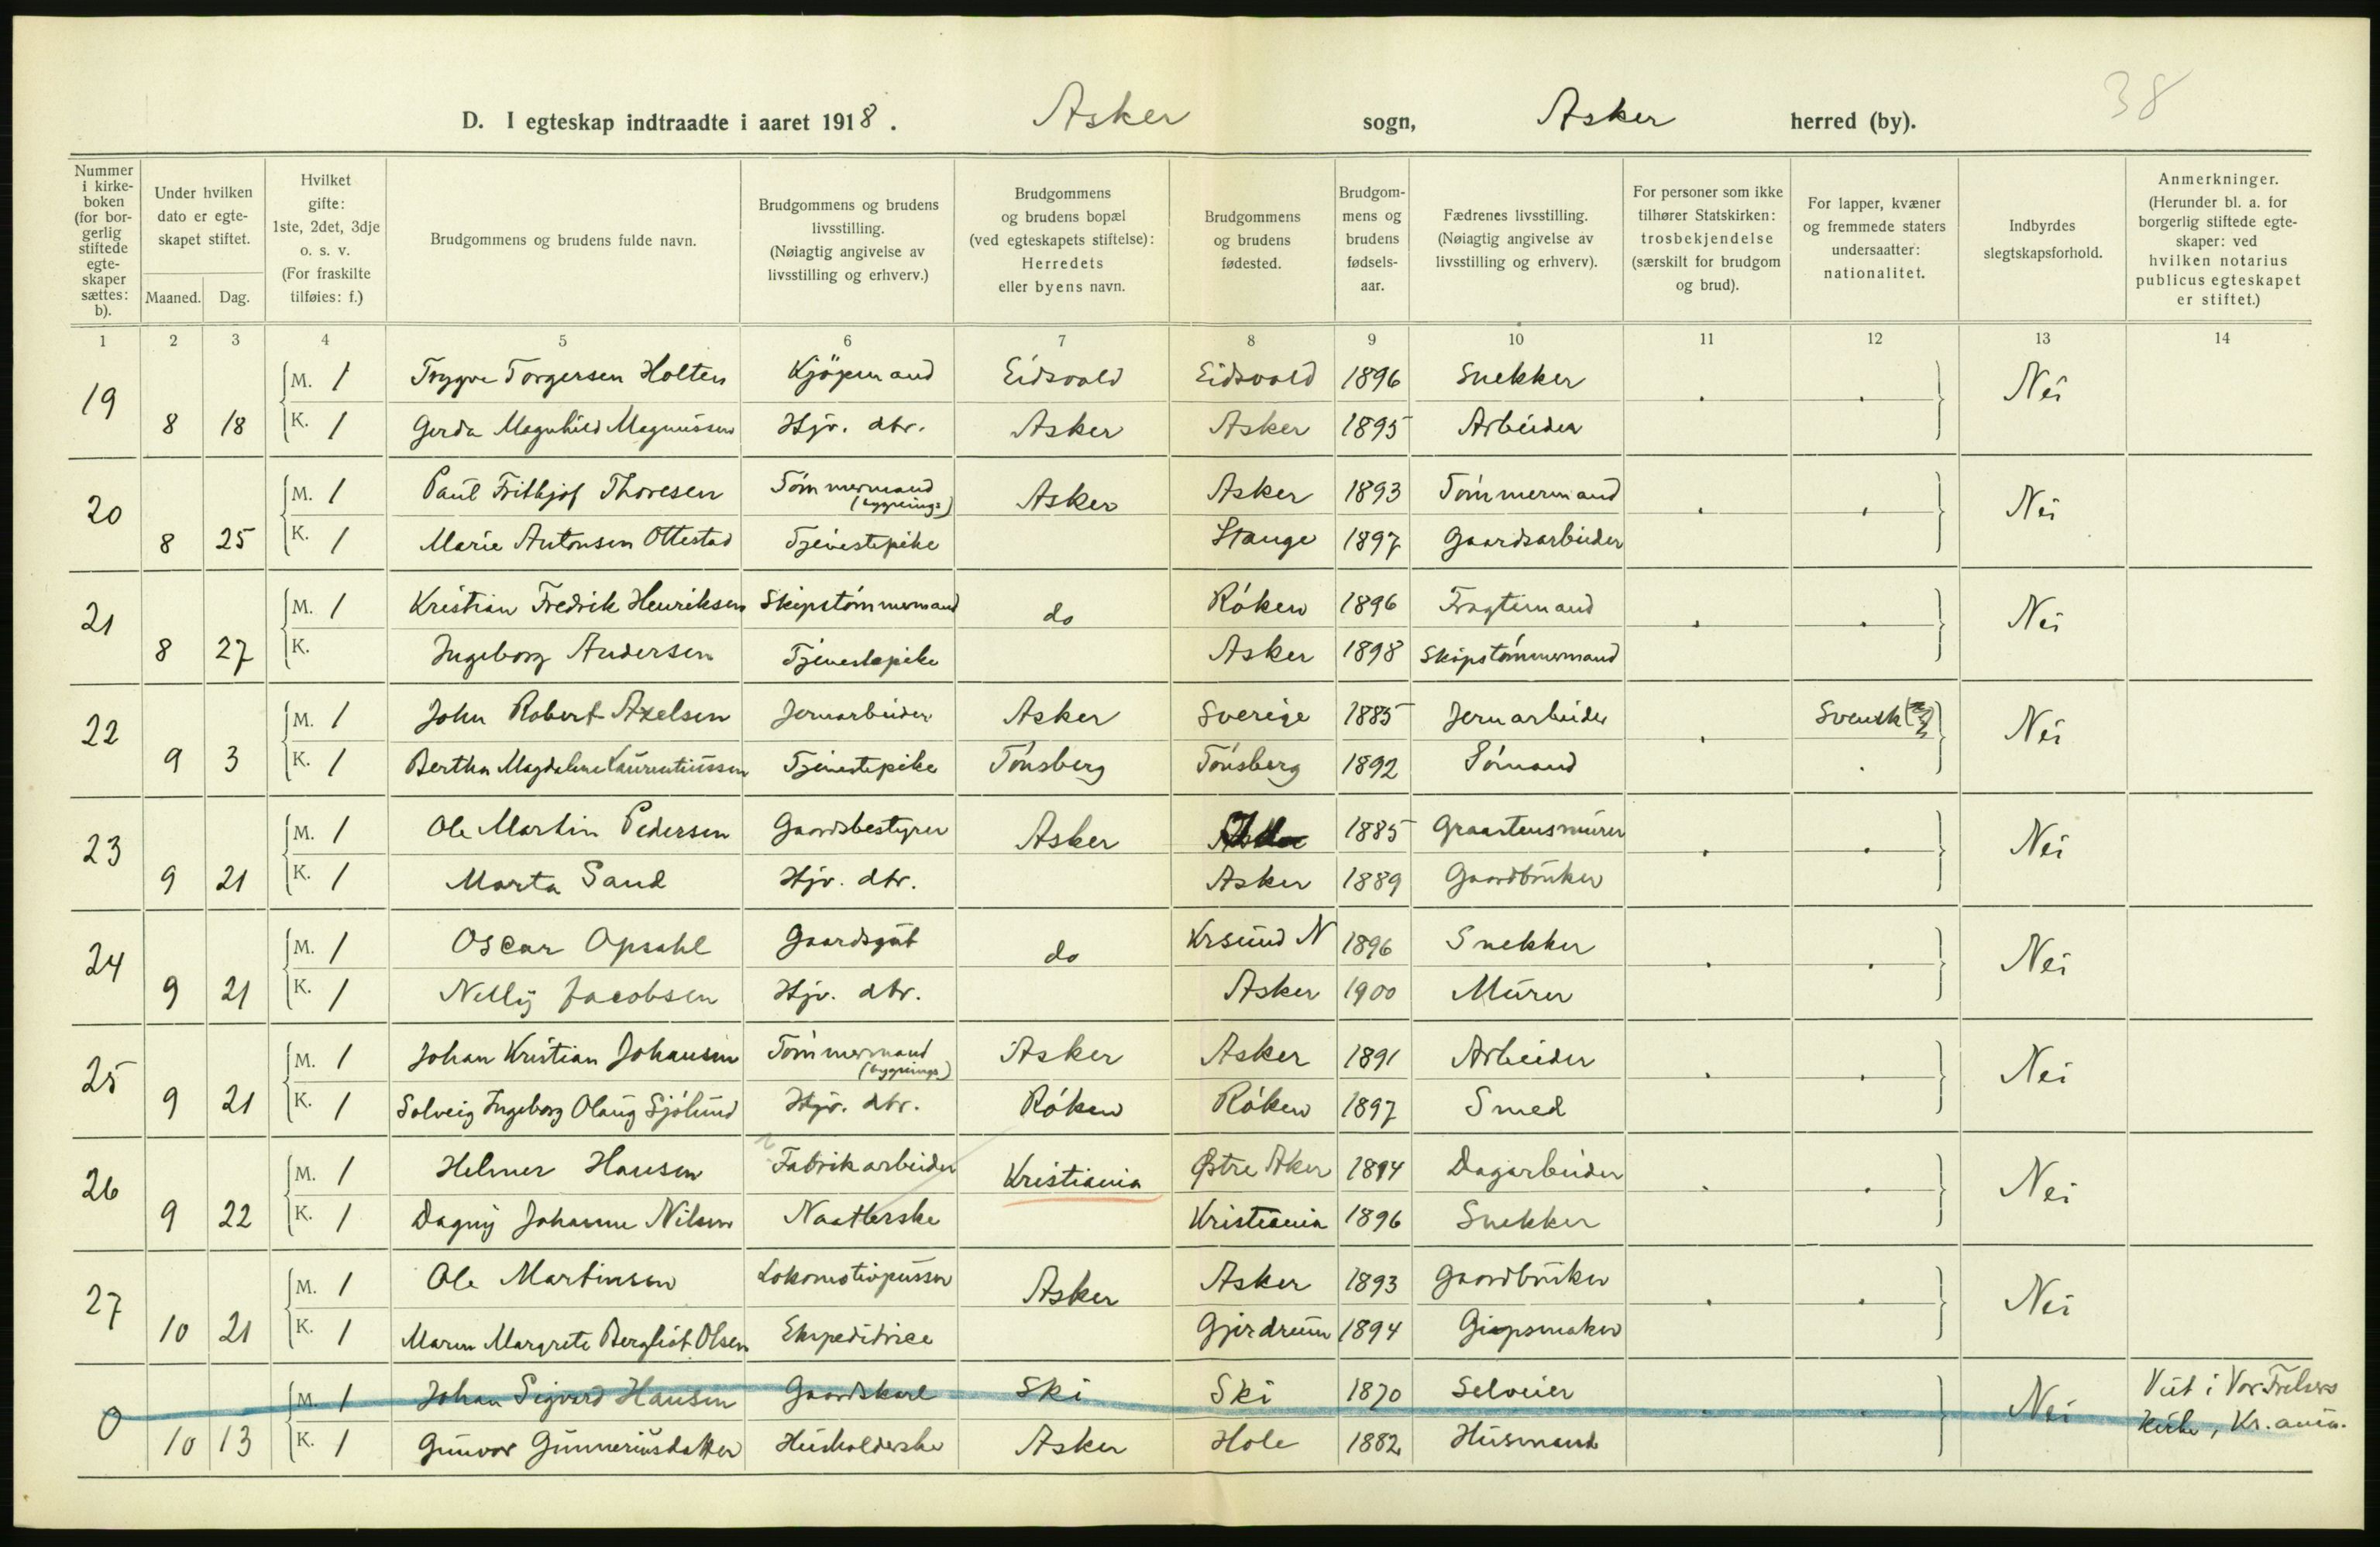 38
D. I egteskap indtraadte i aaret 1918. Asker sogn, Asker herred (by).
Nummer i kirkeboken (for borgerlig stiftede egteskaper sættes: b).
Under hvilken dato er egteskapet stiftet.
Maaned. Dag.
Hvilket gifte: 1ste, 2det, 3dje o. s. v. (For fraskilte tilføies: f.)
Brudgommens og brudens fulde navn.
Brudgommens og brudens livsstilling. (Nøiagtig angivelse av livsstilling og erhverv.)
Brudgommens og brudens bopæl (ved egteskapets stiftelse): Herredets eller byens navn.
Brudgommens og brudens fødested.
Brudgommens og brudens fødselsaar.
Fædrenes livsstilling. (Nøiagtig angivelse av livsstilling og erhverv).
For personer som ikke tilhører Statskirken: trosbekjendelse (særskilt for brudgom og brud).
For lapper, kvæner og fremmede staters undersaatter: nationalitet.
Indbyrdes slegtskapsforhold.
Anmerkninger. (Herunder bl. a. for borgerlig stiftede egteskaper: ved hvilken notarius publicus egteskapet er stiftet.)
1 2 3 4 5 6 7 8 9 10 11 12 13 14
19 M. 1 Trygve Torgersen Holten Kjøpmand Eidsvold Eidsvold 1896 Snekker . . Nei
8 18 K. 1 Gerda Magnhild Magnussen Hjv. dtr. Asker Asker 1895 Arbeider
20 M. 1 Paul Frithjof Thoresen Tømmermand (bygnings) Asker Asker 1893 Tømmermand . . Nei
8 25 K. 1 Marie Antonsen Ottestad Tjenestepike Stange 1897 Gaardsarbeider
21 M. 1 Kristian Fredrik Henriksen Skipstømmermand do Røken 1896 Fragtemand . . Nei
8 27 K. Ingeborg Andersen Tjenestepike Asker 1898 Skipstømmermand
22 M. 1 John Robert Axelsen Jernarbeider Asker Sverige 1885 Jernarbeider . Svensk Nei
9 3 K. 1 Bertha Magdalene Laurentiussen Tjenestepike Tønsberg Tønsberg 1892 Sømand .
23 M. 1 Ole Martin Pedersen Gaardsbestyrer Asker 1885 Graastensmurer . . Nei
9 21 K. 1 Marta Sand Hjv. dtr. Asker 1889 Gaardbruker
24 M. 1 Oscar Opsahl Gaardsgut do Krsund N 1896 Snekker . . Nei
9 21 K. 1 Nelly Jacobsen Hjv. dtr. Asker 1900 Murer
25 M. 1 Johan Kristian Johansen Tømmermand (bygnings) Asker Asker 1891 Arbeider . . Nei
9 21 K. 1 Solveig Ingeborg Olaug Sjølund Hjv. dtr. Røken Røken 1897 Smed
26 M. 1 Helmer Hansen Fabrikarbeider Kristiania Østre Aker 1894 Dagarbeider . . Nei
9 22 K. 1 Dagny Johanne Nilsen Naatlerske Kristiania 1896 Snekker
27 M. 1 Ole Martinsen Lokomotivpusser Asker Asker 1893 Gaardbruker . . Nei
10 21 K. 1 Maren Margrete Bergliot Olsen Ekspeditrice Gjerdrum 1894 Gipsmaker
0 M. 1 Johan Sigvard Hansen Gaardskarl Ski Ski 1870 Selveier . . Nei Viet i Vor Frelsers
10 13 K. 1 Gunvor Gunneriusdatter Husholderske Asker Hole 1882 Husmand kirke, Kr.ania.